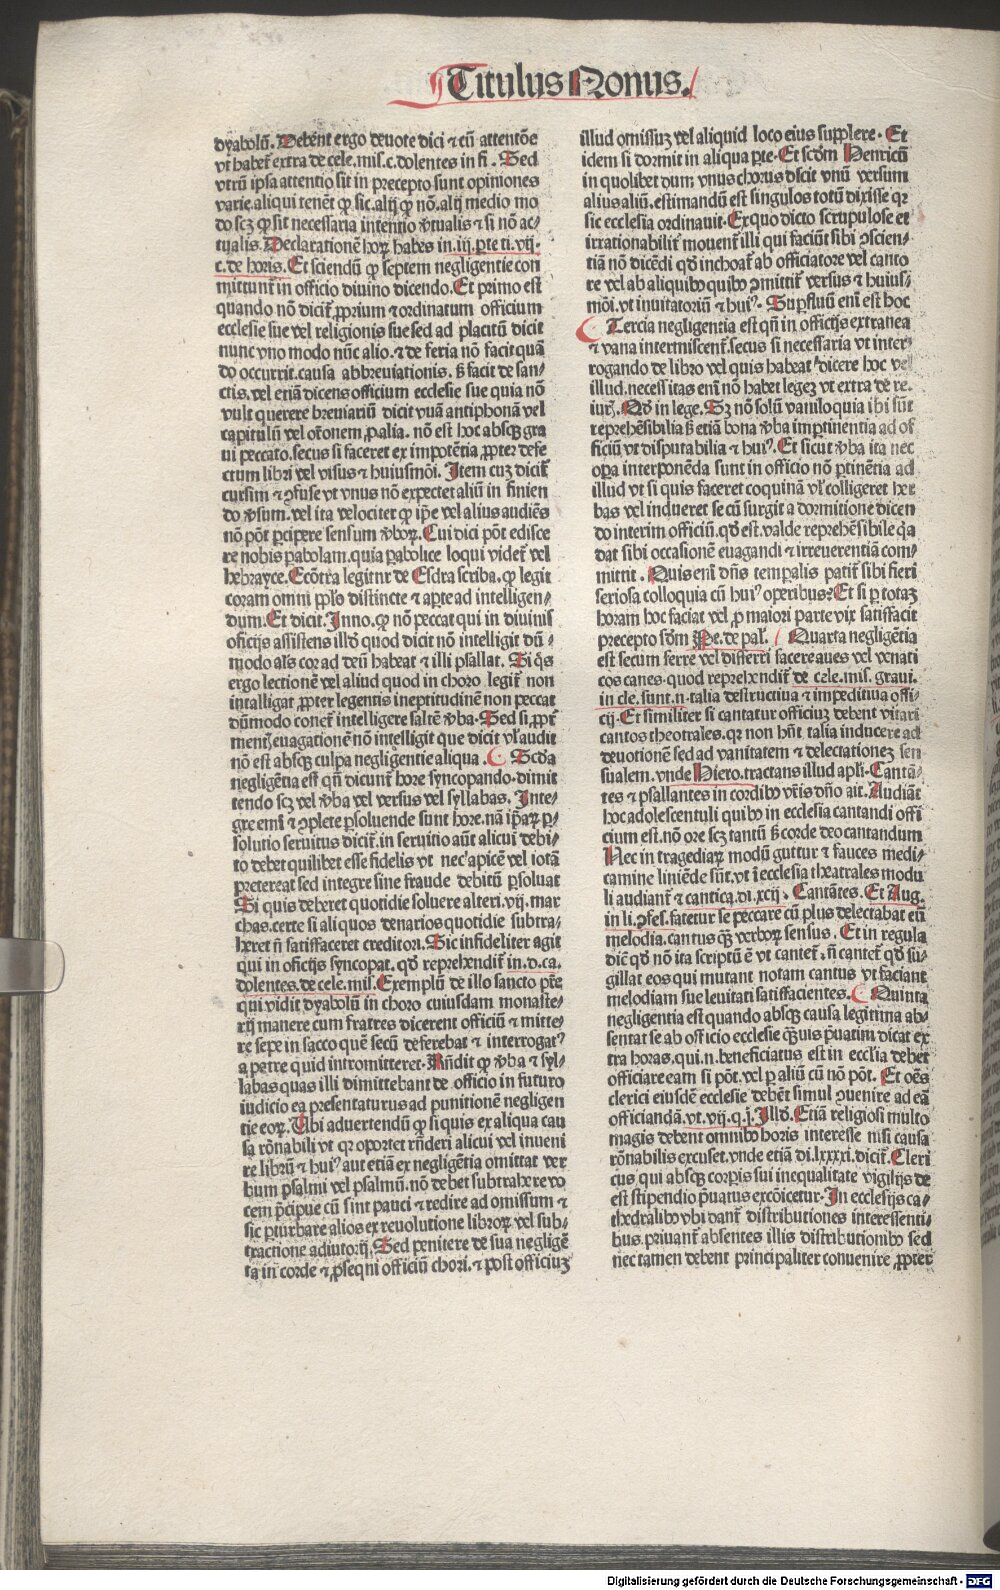 Titulus Nonus.
dyabolū. Debent ergo deuote dici ⁊ cū attentōe
vt habet̄ extra de cele. mis. c. dolentes in fi. Sed
vtrū ipsa attentio sit in precepto sunt opiniones
varie. aliqui tenēt ꝙ sic. alij ꝙ nō. alij medio mo
do scꝫ ꝙ sit necessaria intentio v̓tualis ⁊ si nō ac⸗
tualis. Declarationē hoꝝ habes in. iij. p̱te ti. vij.
c. de horis. Et sciendū ꝙ septem negligentie com
mittunt̄ in officio diuino dicendo. Et primo est
quando nō dicit̄ ꝓprium ⁊ ordinatum officium
ecclesie sue vel religionis sue sed ad placitū dicit
nunc vno modo nūc alio. ⁊ de feria nō facit quā
do occurrit. causa abbreuiationis. s̄ facit de san⸗
ctis. vel etiā dicens officium ecclesie sue quia nō
vult querere breuiariū dicit vnā antiphonā vel
capitulū vel or̄onem ꝓ alia. nō est hoc absqꝫ gra
ui peccato. secus si faceret ex impotētia ꝓpter defe
ctum libri vel visus ⁊ huiusmōi. Item cuꝫ dicit̄
cursim ⁊ ꝯfuse vt vnus nō expectet aliū in finien
do v̓sum. vel ita velociter ꝙ ip̄e vel alius audiēs
nō pōt p̱cipere sensum v̓boꝝ. Cui dici pōt edisce
re nobis p̱abolam. quia p̱abolice loqui videt̄ vel
hebrayce. Ecōtra legitur de Esdra scriba. ꝙ legit
coram omni pp̄lo distincte ⁊ ap̱te ad intelligen⸗
dum. Et dicit. Inno. ꝙ nō peccat qui in diuinis
officijs assistens illd̄ quod dicit nō intelligit dū⸗
modo al̓s cor ad deū habeat ⁊ illi psallat. Si q̓s
ergo lectionē vel aliud quod in choro legit̄ non
intalligat ꝓpter legentis ineptitudinē non peccat
dūmodo conet̄ intelligere saltē v̓ba. Sed si ꝓpt̄
mentꝭ euagationē nō intelligit que dicit vl̓ audit
nō est absqꝫ culpa negligentie aliqua. Scd̄a
negligētia est qn̄ dicunt̄ hore syncopando. dimit
tendo scꝫ vel v̓ba vel versus vel syllabas. Inte⸗
gre em̄ ⁊ ꝯplete p̱soluende sunt hore. nā ip̄aꝝ p̱⸗
solutio seruitus dicit̄. in seruitio aūt alicui debi⸗
to debet quilibet esse fidelis vt nec apicē vel iotā
pretereat sed integre sine fraude debitū p̱soluat
Si quis deberet quotidie soluere alteri. vij. mar
chas. certe si aliquos denarios quotidie subtra⸗
heret n̄ satisfaceret creditori. Sic infideliter agit
qui in oficijs syncopat. qd̓ reprehendit̄ in. d. ca.
dolentes. de cele. mis. Exemplū de illo sancto p̄re
qui vidit dyabolū in choro cuiusdam monaste⸗
rij manere cum fratres dicerent officiū ⁊ mitte⸗
re sepe in sacco quē secū deferebat ⁊ interrogatꝰ
a petre quid intromitteret. Rn̄dit ꝙ v̓ba ⁊ syl⸗
labas quas illi dimittebant de officio in futuro
iudicio ea presentaturus ad punitionē negligen
tie eoꝝ. Ubi aduertendū ꝙ si quis ex aliqua cau
sa rōnabili vt qꝛ oportet rn̄deri alicui vel inueni
re librū ⁊ huiꝰ aut etiā ex negligētia omittat ver
bum psalmi vel psalmū. nō debet subtrahere vo
cem p̄cipue cū sint pauci ⁊ redire ad omissum ⁊
sic p̱turbare alios ex reuolutione libroꝝ vel sub⸗
tractione adiutorij. Sed penitere de sua negligē
tia in corde ⁊ ꝓseqni officiū chori. ⁊ post officiuꝫ
illud omissuꝫ vel aliquid loco eius supplere. Et
idem si dormit in aliqua p̱te. Et scd̓m Henricū
in quolibet dum vnus chorus dicit vnū versum
alius aliū. estimandū est singulos totū dixisse qꝛ
sic ecclesia ordinauit. Ex quo dicto scrupulose et
irrationabilit̄ mouent̄ illi qui faciūt sibi ꝯscien⸗
tiā nō dicēdi qd̓ inchoat̄ ab officiatore vel canto
re vel ab aliquibꝰ quibꝰ ꝯmittit̄ versus ⁊ huius⸗
mōi. vt inuitatoriū ⁊ huiꝰ. Suꝑfluū eni est hoc
Tercia negligentia est qn̄ in officijs extranea
⁊ vana intermiscent̄. secus si necessaria vt inter⸗
rogando de libro vel quis habeat dicere hoc vel
illud. necessitas enī nō habet legeꝫ vt extra de re.
iurꝭ. Qd̓ in lege. Sꝫ nō solū vaniloquia ibi sūt
reprehēsibilia s̄ etiā bona v̓ba imp̱tinentia ad of
ficiū vt disputabilia ⁊ huiꝰ. Et sicut v̓ba ita nec
oꝑa interponēda sunt in officio nō p̱tinētia ad
illud vt si quis faceret coquinā vl̓ colligeret her
bas vel indueret se cū surgit a dormitione dicen
do interim officiū. qd̓ est. valde reprehēsibile q̓a
dat sibi occasionē euagandi ⁊ irreuerentiā com⸗
mittit. Quis enī dn̄s temp̱alis patit̄ sibi fieri
seriosa colloquia cū huiꝰ operibus? Et si p̱ totaꝫ
horam hoc faciat vel ꝓ maiori parte vix satisfacit
precepto scd̓m Pe. de pal. Quarta negligētia
est secum ferre vel differri facere aues vel venati
cos canes. quod reprehendit̄ de cele. mis. graui.
in cle. sunt. n. talia destructiua ⁊ impeditiua offi⸗
cij. Et similiter si cantatur officiuꝫ debent vitari
cantos theotrales. qꝛ non hn̄t talia inducere ad
deuotionē sed ad vanitatem ⁊ delectationeꝫ sen
sualem. vnde Hiero. tractans illud apl̓i. Cantā⸗
tes ⁊ psallantes in cordibꝰ vr̄is dn̄o ait. Audiāt
hoc adolescentuli quibꝰ in ecclesia cantandi offi
cium est. nō ore scꝫ tantū s̄ corde deo cantandum
Nec in tragediaꝝ modū guttur ⁊ fauces medi⸗
camine liniēde sūt. vt ī ecclesia theatrales modu
li audiant̄ ⁊ cantica. di. xcij. Cantātes. Et Aug.
in li. ꝯfes. fatetur se peccare cū plus delectabat eū
melodia. cantus qꝫ̄ verboꝝ sensus. Et in regula
diē qd̓ nō ita scriptū ē vt cantet̄. n̄ cantet̄ qd̓ su⸗
gillat eos qui mutant notam cantus vt faciant
melodiam sue leuitati satisfacientes. Quinta
negligentia est quando absqꝫ causa legittima ab⸗
sentat se ab officio ecclesie qꝫ̄uis p̄uatim dicat ex
tra horas. qui. n. beneficiatus est in eccl̓ia debet
officiare eam si pōt. vel p̱ aliū cū nō pōt. Et oēs
clerici eiusdē ecclesie debēt simul ꝯuenire ad eā
officiandā. vt. vij. q. j. Illd̓. Etiā religiosi multo
magis debent omnibꝰ horis interesse nisi causa
rōnabilis excuset. vnde etiā di. lxxxxi. dicit̄. Cleri
cus qui absqꝫ corp̱is sui inequalitate vigilijs de
est stipendio p̄uatus excōicetur. In ecclesijs ca⸗
thedralibꝰ vbi dant̄ distributiones interessenti⸗
bus. priuant̄ absentes illis distributionibꝰ sed
nec tamen debent principaliter conuenire ꝓpter
Digitalisierung gefördert durch die Deutsche Forschungsgemeinschaft - DFG